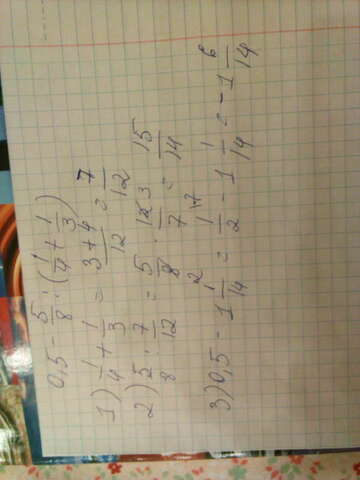 0,5 - 5/8 : (1/4 + 1/3)
1) 1/4 + 1/3 = 3+4/12 = 7/12
2) 5/8 : 7/12 = 5/8 · 12/7 = 15/14
3) 0,5 - 1 1/14 = 1/2 - 1 1/14 = - 1 6/14